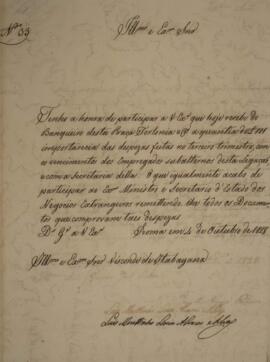 Nº 33
Illmo e Exmo Snr
Tenho a honra de participar a V Exª que hoje recebi do
Banqueiro desta Praça Torlonia a quantia de
importancia das despezas feitas no terceiro trimestre, com
os vencimentos dos Empregados subalternos desta Legação,
e com a Secretaria della. O que igualmente acabo de
participar ao Exmo Ministro e Secretario d'Estado dos
Negocios Estrangeiros remettendo-lhe todos os Documen-
tos que comprovam taes despezas
Ds Gde a V Exª Roma em 4 de Outubro de 1828
Illmo e Exmo Snr Visconde de Itabayana